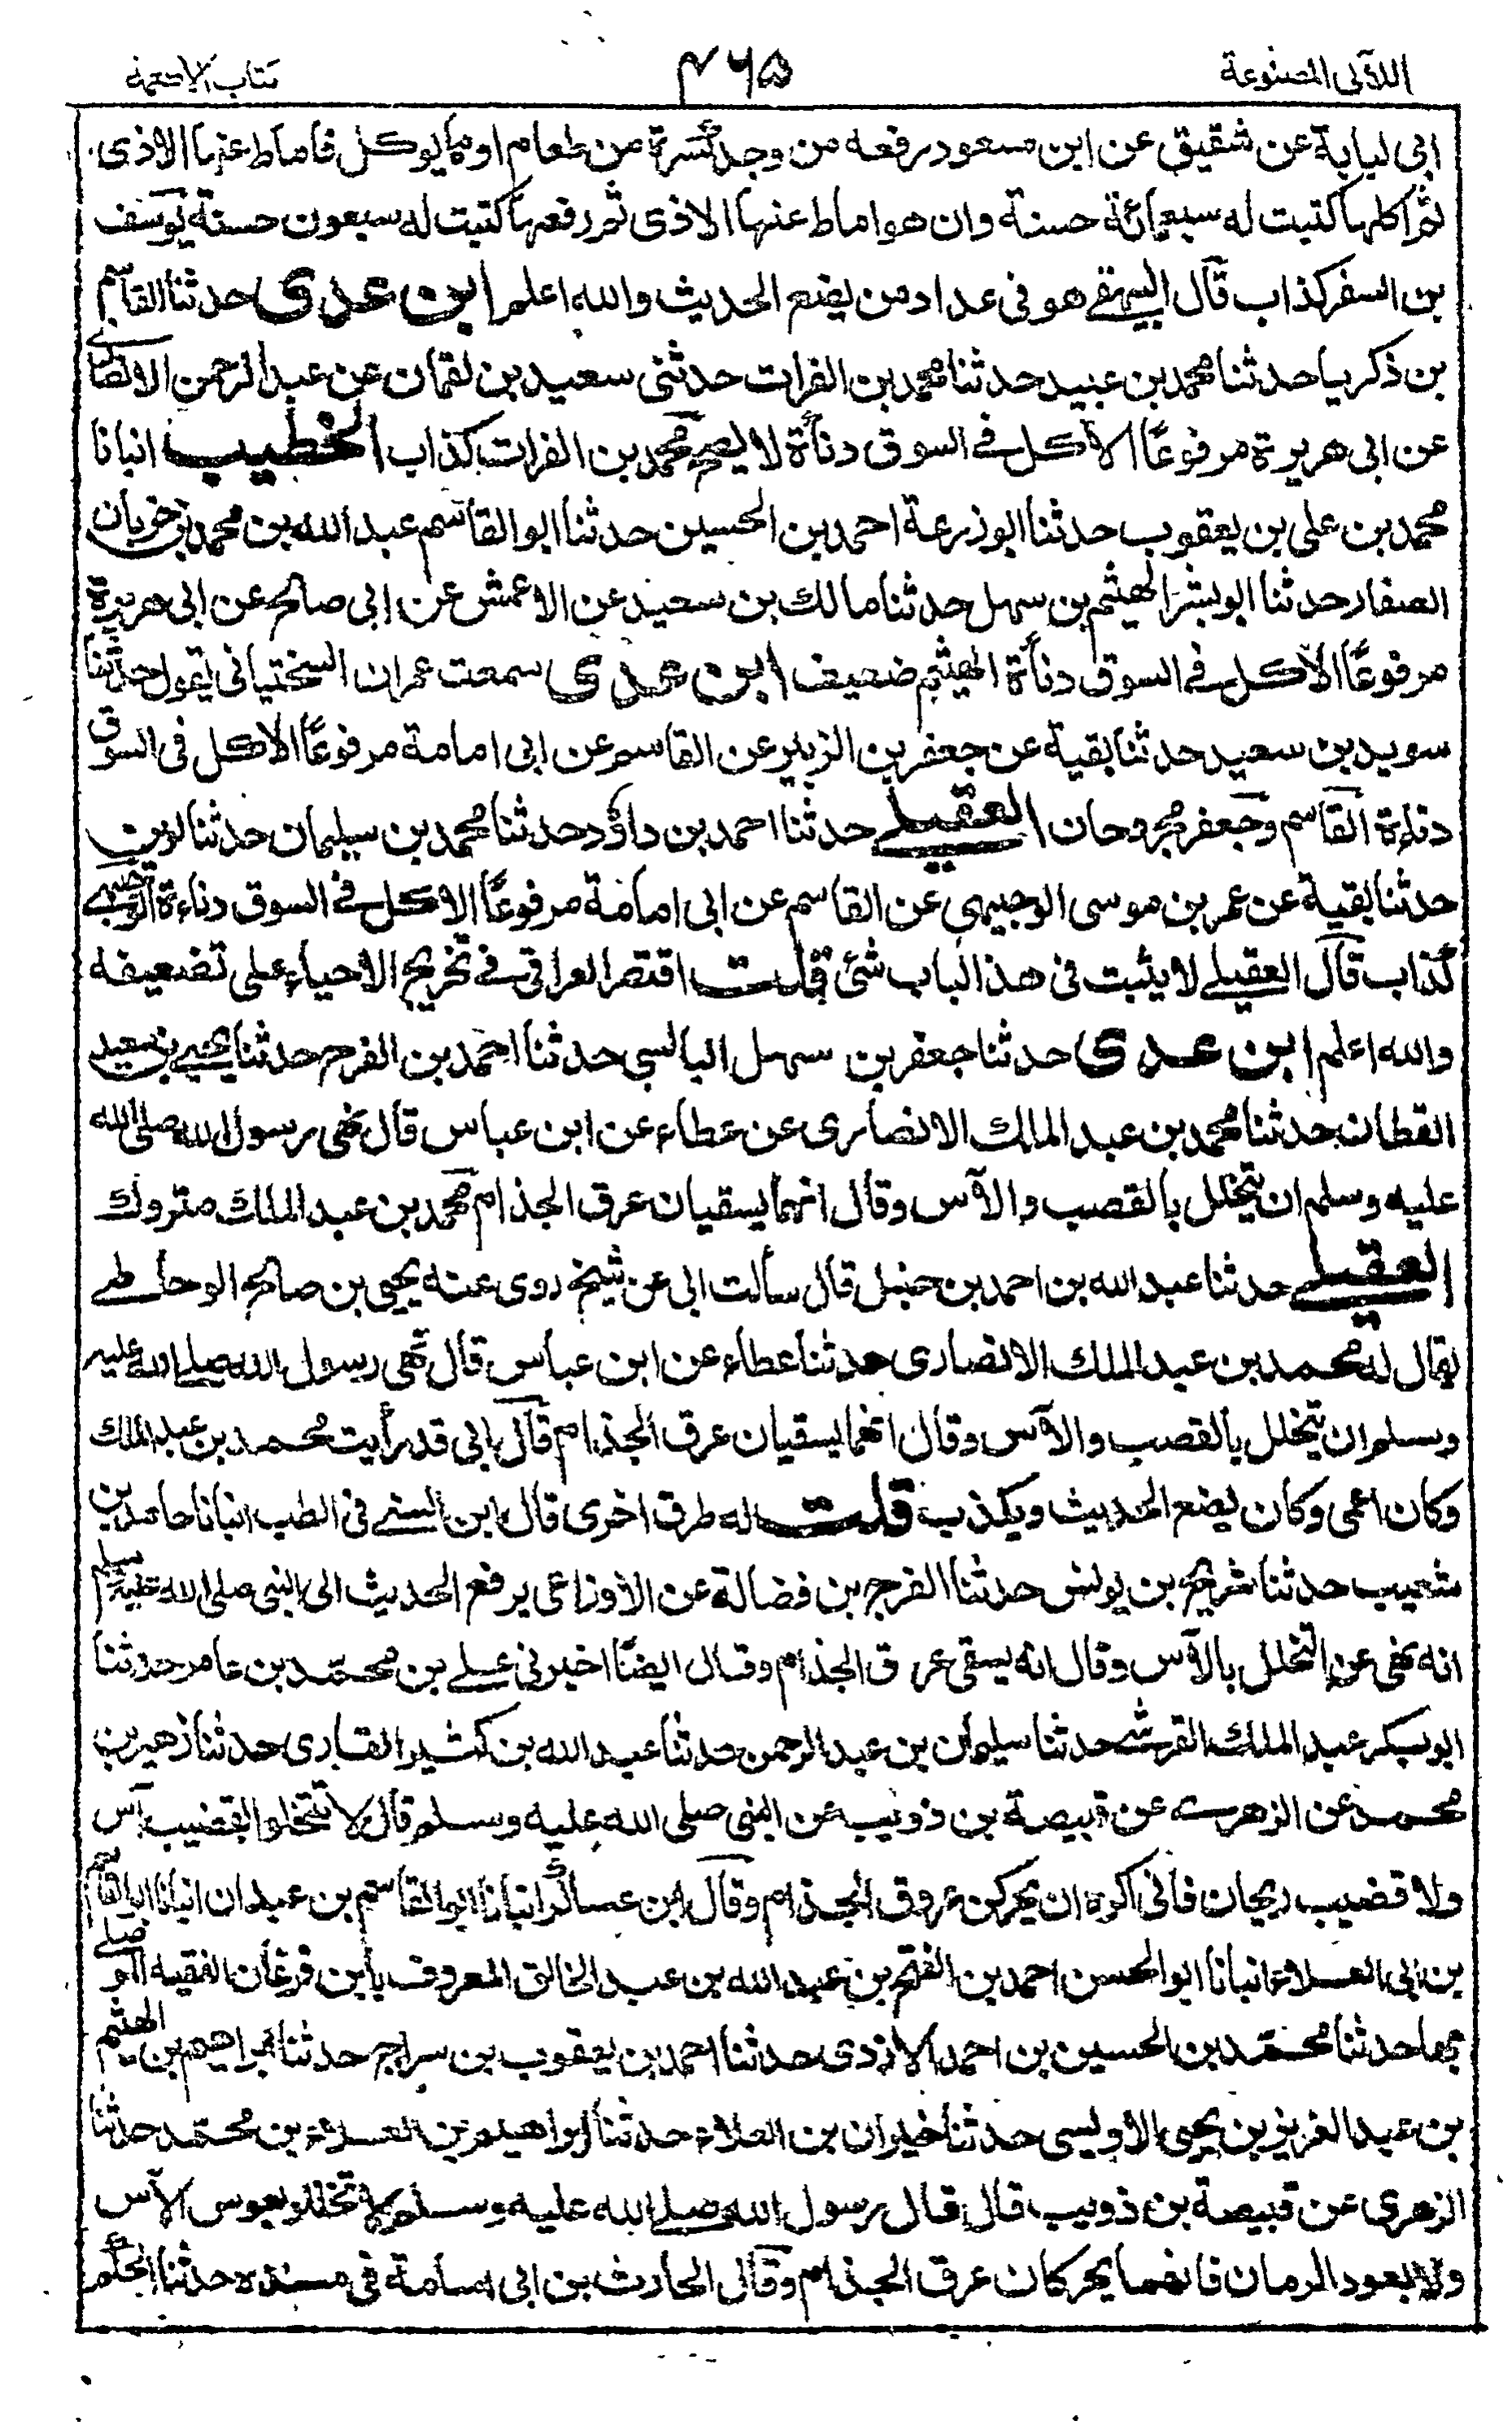 اللآلى المصنوعة
۴۶۵
كتاب الاطعمة
ابى لبابة عن شقيق عن ابن مسعود رفعه من وجد كسرة من طعام او مما يوكل فاماط عنها الاذى
ثم اكلها كتبت له سبعمائة حسنة وان هو اماط عنها الاذى ثم رفعها كتبت له سبعون حسنة يوسف
بن السفر كذاب قال البيهقے هو فى عداد من يضع الحديث والله اعلم ابن عدى حدثنا القاسم
بن ذكريا حدثنا محمد بن عبيد حدثنا محمد بن الفرات حدثنى سعيد بن لقمان عن عبد الرحمن الانصارى
عن ابى هريرة مرفوعًا الاكل فے السوق دنأة لا يصح محمد بن الفرات كذاب الخطيب انبانا
محمد بن على بن يعقوب حدثنا ابو ذرعة احمد بن الحسين حدثنا ابو القاسم عبد الله بن محمد بن خربان
الصفار حدثنا ابو بشر الهيثم بن سهل حدثنا مالك بن سعيد عن الاعمش عن ابى صالح عن ابى هريرة
مرفوعًا الاكل فے السوق دنأة الهيثم ضعيف ابن عدى سمعت عمران السختيانى يقول حدثنا
سويد بن سعيد حدثنا بقية عن جعفر بن الزبير عن القاسم عن ابى امامة مرفوعًا الاكل فى السوق
دناءة القاسم وجعفر مجروحان العقيلے حدثنا احمد بن داؤد حدثنا محمد بن سليمان حدثنا لوين
حدثنا بقية عن عمر بن موسى الوجيهى عن القاسم عن ابى امامة مرفوعًا الاكل فے السوق دناءة الوجيهے
كذاب قال العقيلے لا يثبت فى هذا الباب شئ قلت اقتصر العراقى فے تخريج الاحياء على تضعيفه
والله اعلم ابن عدى حدثنا جعفر بن سهل البالسى حدثنا احمد بن الفرج حدثنا يحيے بن سعيد
القطان حدثنا محمد بن عبد المالك الانصارى عن عطاء عن ابن عباس قال نهى رسول الله صلى الله
عليه وسلم ان يتخلل بالقصب والآس وقال انهما يسقيان عرق الجذام محمد بن عبد الملك متروك
العقيلے حدثنا عبد الله بن احمد بن حنبل قال سألت ابى عن شيخ روى عنه يحيى بن صالح الوحاظے
يقال له محمد بن عبد الملك الانصارى حدثنا عطاء عن ابن عباس قال نهى رسول الله صلے الله عليه
وسلم ان يتخلل بالقصب والآس وقال انهما يسقيان عرق الجذام قال ابى قد رأيت محمد بن عبد الملك
وكان اعمى وكان يضع الحديث ويكذب قلت له طرق اخرى قال ابن السنے فى الطب انبانا حامد بن
شعيب حدثنا شريح بن يونس حدثنا الفرج بن فضالة عن الاوزاعى يرفع الحديث الى النبى صلى الله عليه وسلم
انه نهى عن التخلل بالآس وقال انه يسقى عرق الجذام وقال ايضًا اخبرنى علے بن محمد بن عامر حدثنا
ابو بكر عبد الملك القرشے حدثنا سليمان بن عبد الرحمن حدثنا عبد الله بن كثير القارى حدثنا زهير بن
محمد عن الزهرے عن قبيصة بن ذويب عن النبى صلى الله عليه وسلم قال لا تتخلوا بقضيب آس
ولا قضيب ريحان فانى اكره ان يحركن عروق الجذام وقال ابن عساكر انبانا ابو القاسم بن عبدان انبانا ابو القاسم
بن ابى العلاء انبانا ابو الحسن احمد بن الفتح بن عبد الله بن عبد الخالق المعروف بابن فرغان الفقيه الموصلے
بها حدثنا محمد بن الحسين بن احمد الازدى حدثنا احمد بن يعقوب بن سراج حدثنا ابراهيم بن الهيثم
بن عبد العزيز بن يحيى الاويسى حدثنا خيران بن العلاء حدثنا ابراهيم بن العلاء بن محمد حدثنا
الزهرى عن قبيصة بن ذويب قال قال رسول الله صلے الله عليه وسلم لا تخللو بعوس الآس
ولا بعود الرمان فانهما يحركان عرق الجذام وقال الحارث بن ابى اسامة فى مسنده حدثنا الحكم